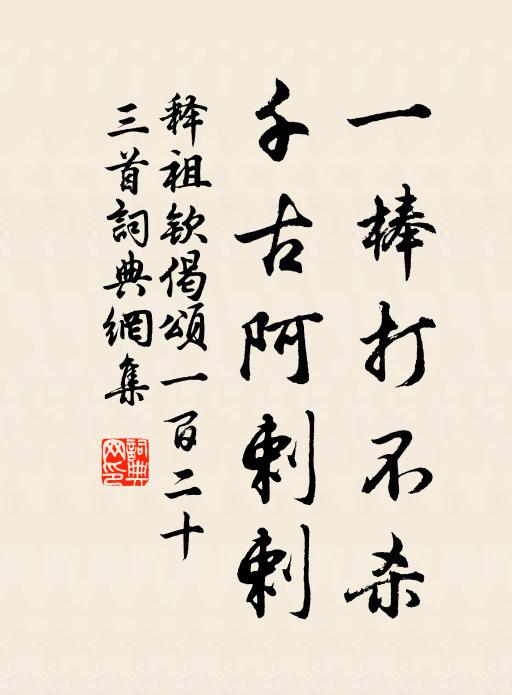 一棒打不杀
千古阿刺刺
释祖钦偈頌一百二十
三首詞典網集
詞典
网印